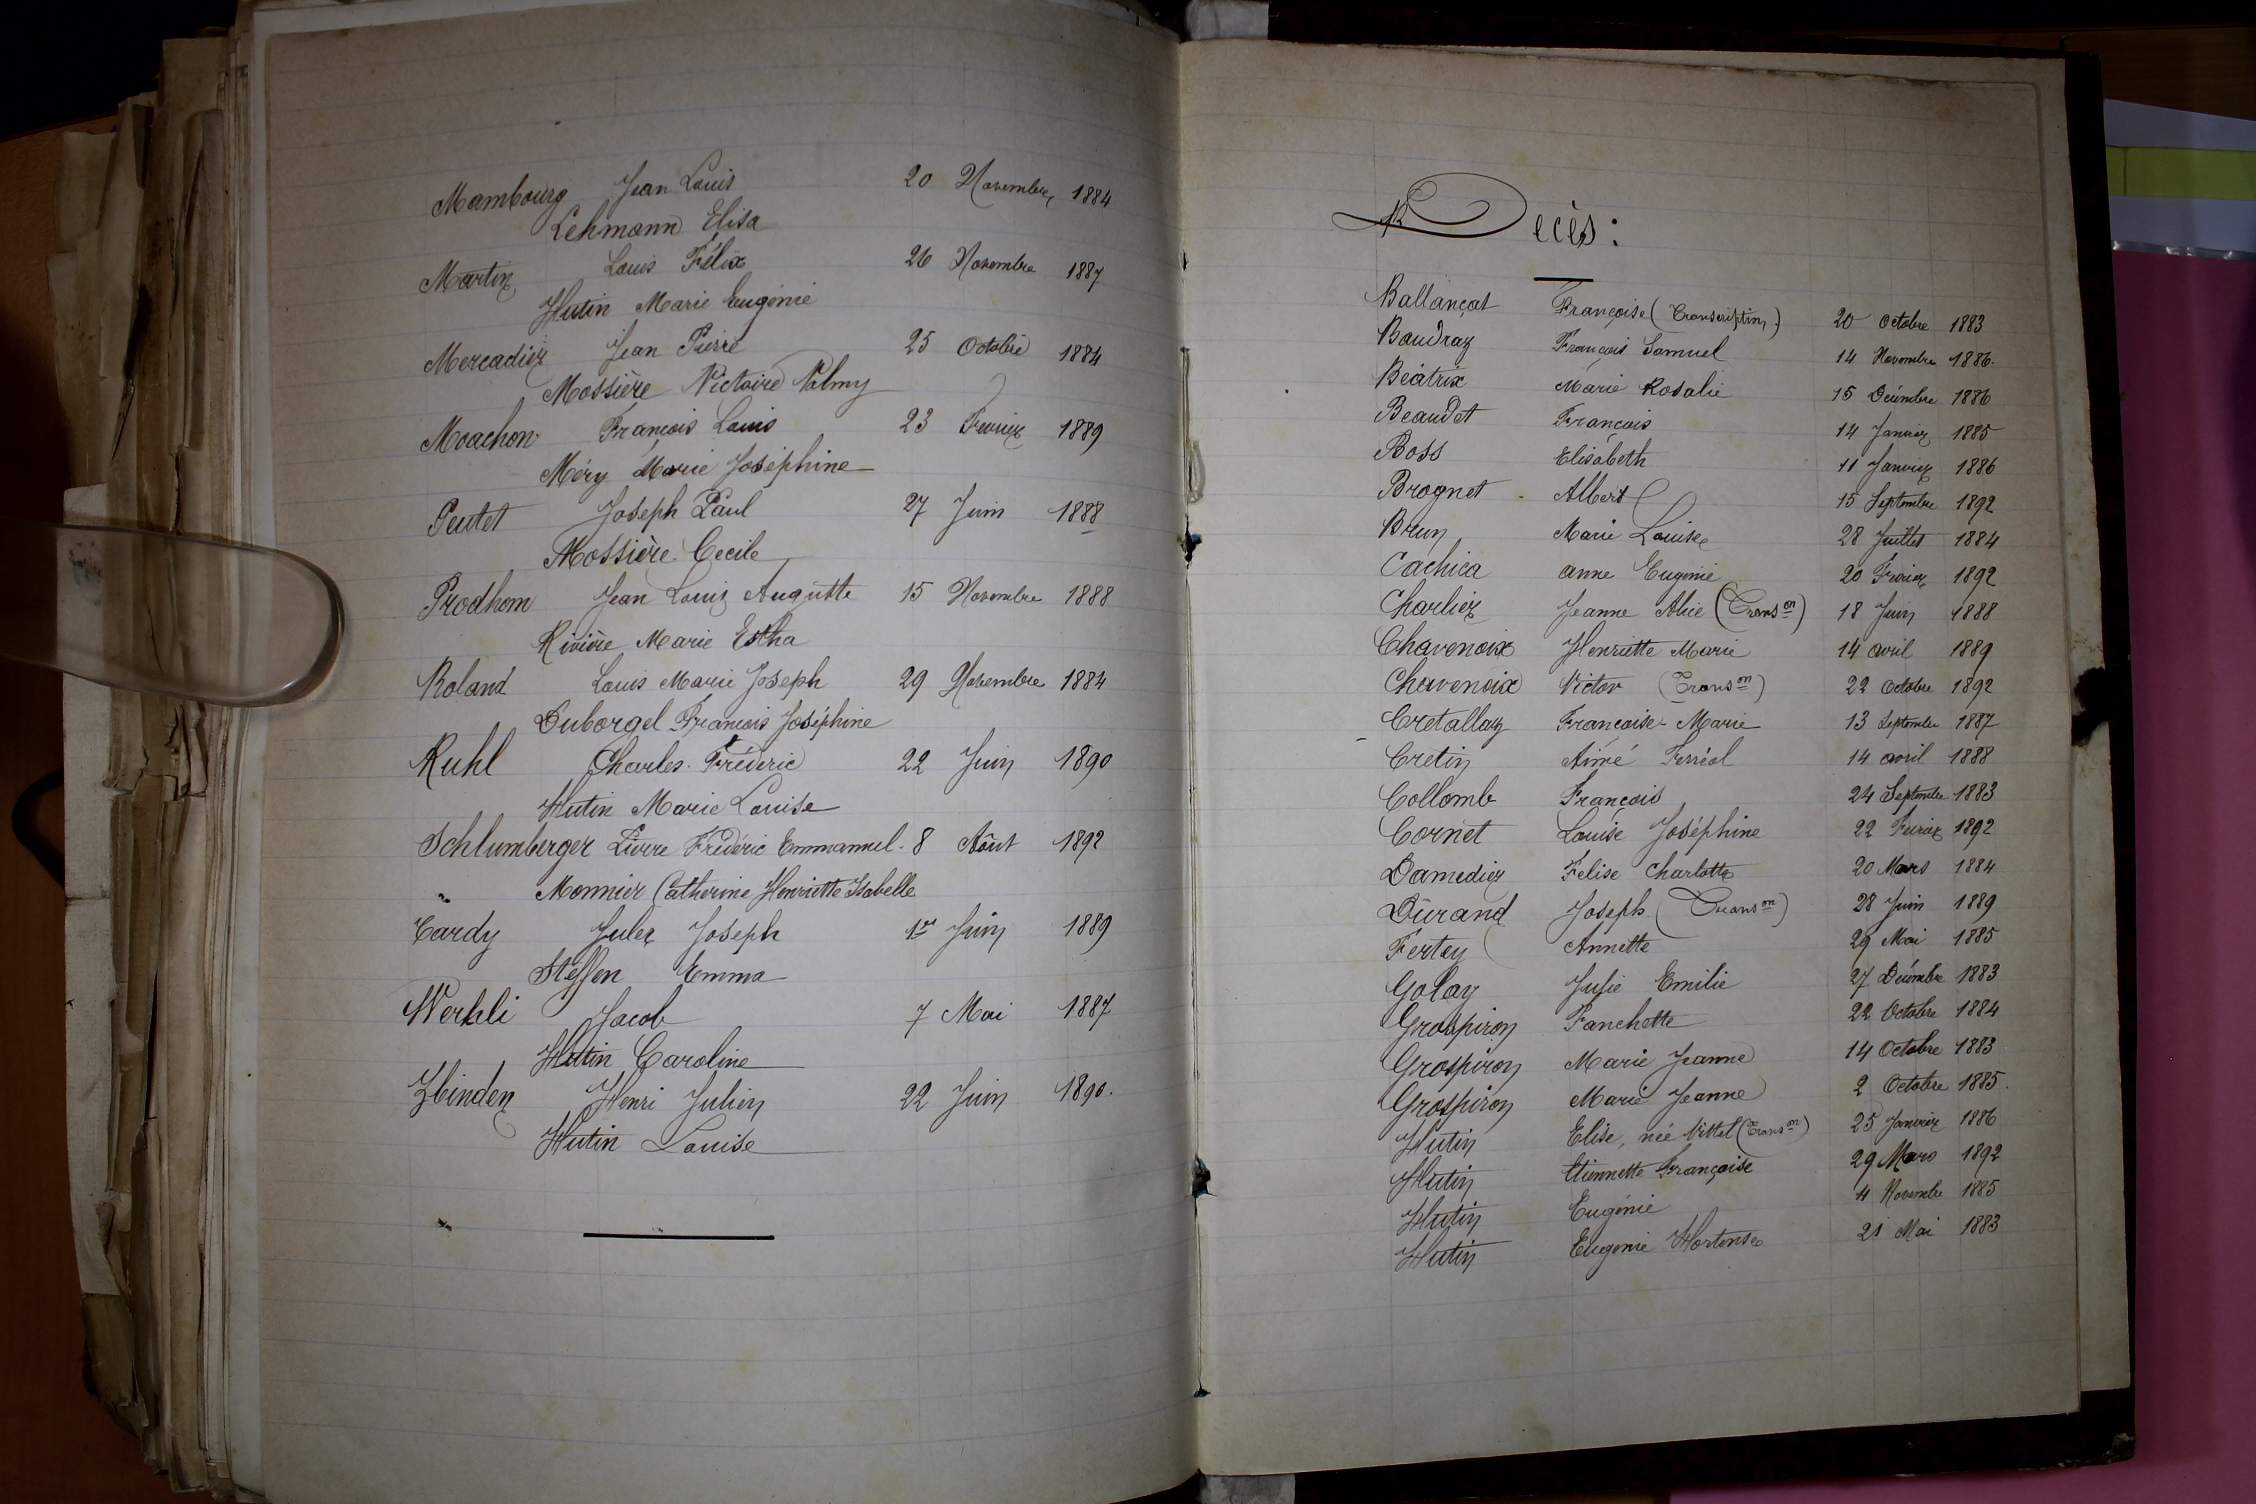 Mambourg Jean Louis 20 Novembre 1884
Lehmann Elisa
Martin Louis Félix 26 Novembre 1887
Hutin Marie Eugénie
Mercadier Jean Pierre 25 Octobre 1884
Mossière Victoire Palmy
Moachon François Louis 23 Fevrier 1889
Méry Marie Joséphine
Peutet Joseph Paul 27 Juin 1888
Mossière Cecile
Prodhom Jean Louis Auguste 15 Novembre 1888
Rivière Marie Estha
Roland Louis Marie Joseph 29 Novembre 1884
Duborgel François Joséphine
Ruhl Charles Fréderic 22 Juin 1890
Hutin Marie Louise
Schlumberger Pierre Fréderic Emmanuel 8 Août 1892
Monnier Catherine Henriette Isabelle
Tardy Jules Joseph 1er Juin 1889
Steffen Emma
Werhli Jacob 7 Mai 1887
Hutin Caroline
Zbinden Henri Julien 22 Juin 1890.
Hutin Louise
Decès :
Ballançat Françoise (Transcription) 20 Octobre 1883
Baudraz François Samuel 14 Novembre 1886.
Béatrix Marie Rosalie 15 Décembre 1886
Beaudet François 14 Janvier 1885
Boss Elisabeth 11 Janvier 1886
Brognet Albert 15 Septembre 1892
Brun Marie Louise 28 Juillet 1884
Cachica anne Eugenie 20 Fevrier 1892
Charlier Jeanne Alice (Transon) 18 Juin 1888
Chavenoix Henriette Marie 14 avril 1889
Chavenoix Victor (Transon) 22 Octobre 1892
Cretallaz Françoise-Marie 13 Septembre 1887
Cretin Aimé Ferréol 14 avril 1888
Collomb François 24 Septembre 1883
Cornet Louise Joséphine 22 Fevrier 1892
Damedier Felise Charlotte 20 Mars 1884
Durand Joseph (Transon) 28 Juin 1889
Fertey Annette 29 Mai 1885
Golay Julie Emilie 27 Décembre 1883
Grospiron Fanchette 22 Octobre 1884
Grospiron Marie Jeanne 14 Octobre 1883
Grospiron Marie Jeanne 2 Octobre 1885.
Hutin Elise, née Vittet (Transon) 25 Janvier 1886
Hutin Etiennette Françoise 29 Mars 1892
Hutin Eugénie 4 Novembre 1885
Hutin Eugenie Hortense 21 Mai 1883